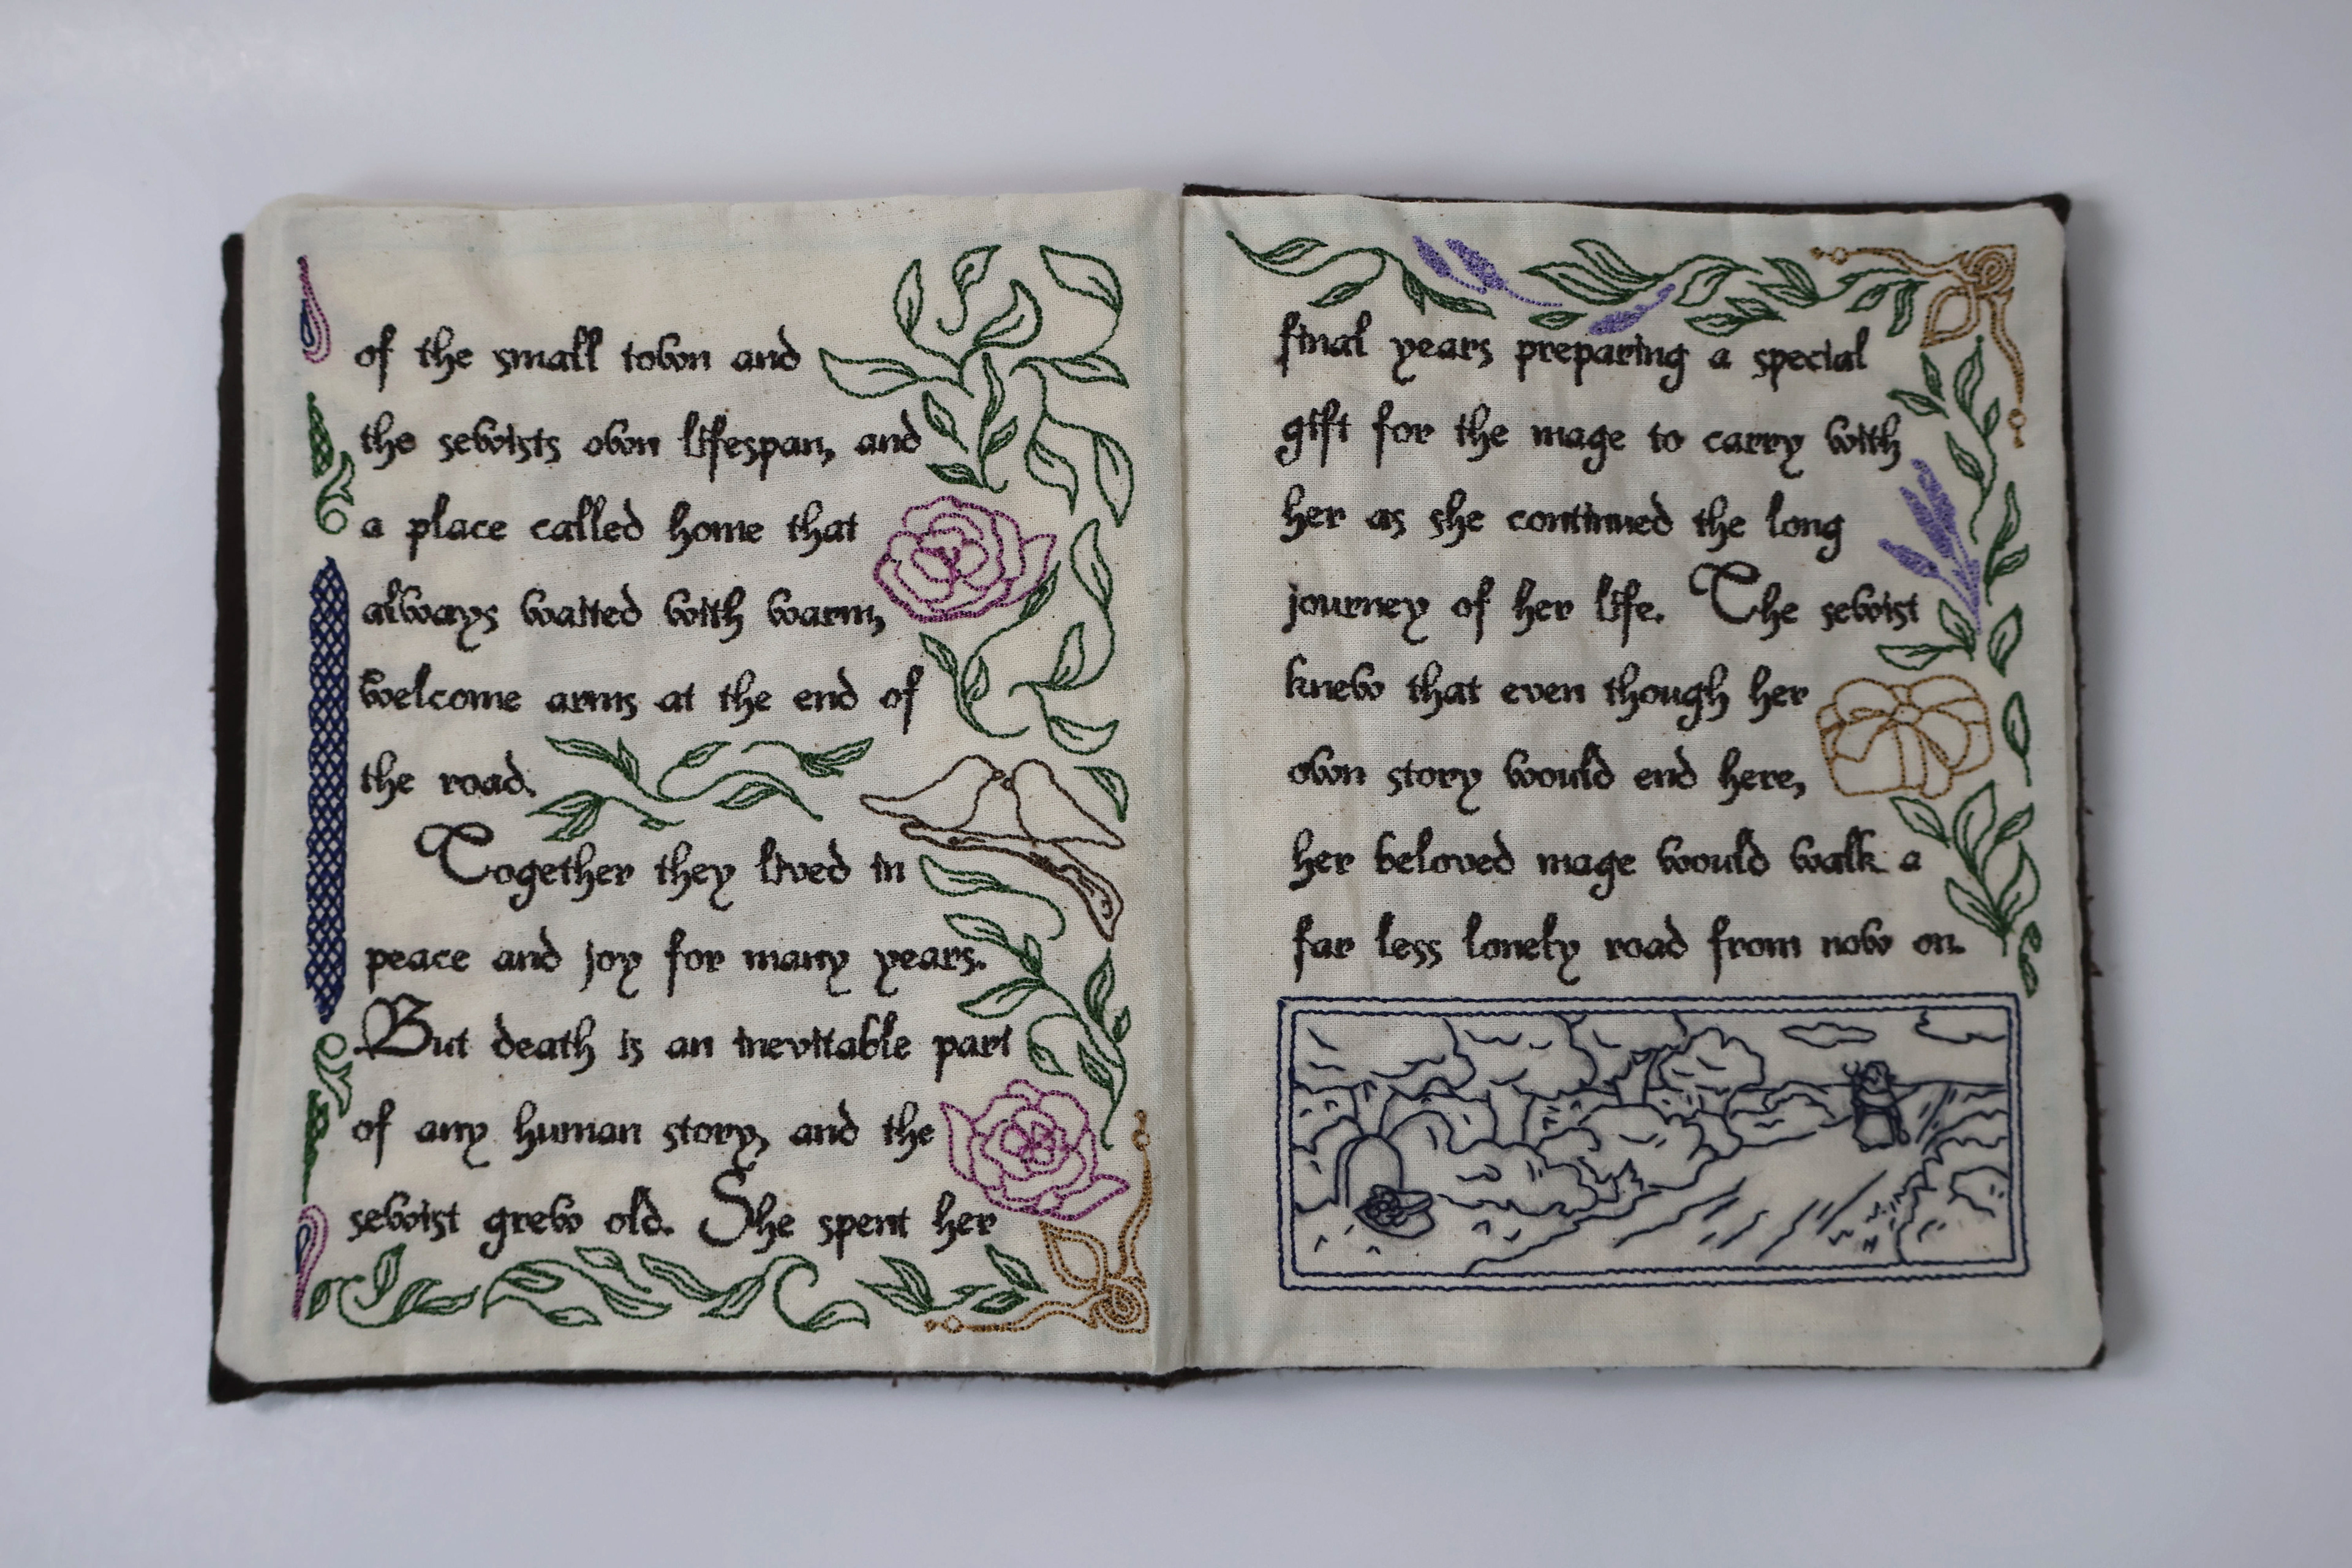 of the small town and
the sewists own lifespan, and
a place called home that
always waited with warm,
welcome arms at the end of
the road.
Together they lived in
peace and joy for many years.
But death is an inevitable part
of any human story, and the
sewist grew old. She spent her
final years preparing a special
gift for the mage to carry with
her as she continued the long
journey of her life. The sewist
knew that even though her
own story would end here,
her beloved mage would walk a
far less lonely road from now on.